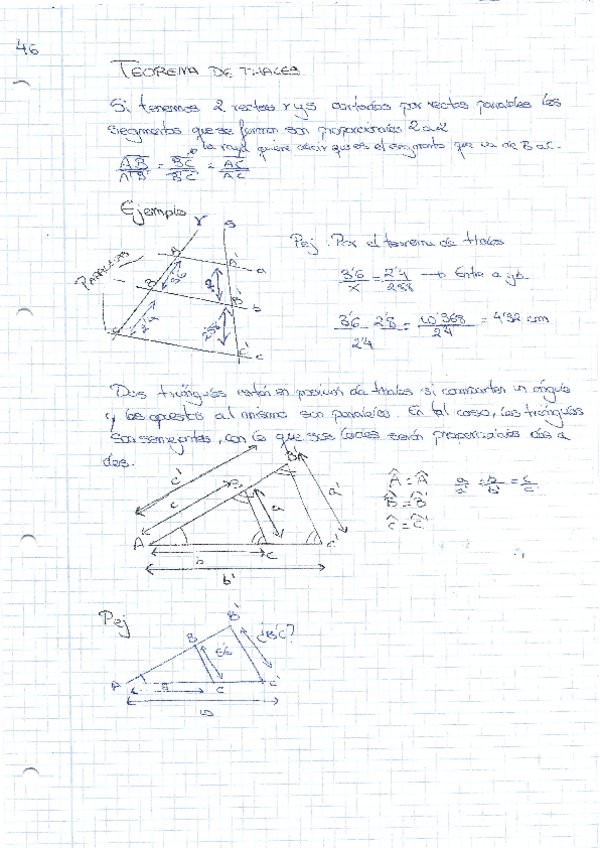 46
TEOREMA DE THALES
Si tenemos 2 rectas r y s cortadas por rectas paralelas los
segmentos que se forman son proporcionales 2 a 2
la raya quiere decir que es el segmento que va de B a C.
AB/A'B' = BC/B'C' = AC/AC
Ejemplo
r s
PARALELAS
A A' a
B B' b
C C' c
Pej. Por el teorema de thales
3'6/x = 2'4/2'88 → Entre a y b.
3'6 · 2'8/2'4 = 10'368/2'4 = 4'32 cm
Dos triángulos están en posición de thales si comparten un ángulo
y los opuestos al mismo son paralelos. En tal caso, los triángulos
son semejantes, con lo que sus lados serán proporcionales dos a
dos.
c' B' a'
c B a
A b C C'
b'
Â = Â' a/a' = b/b' = c/c'
B̂ = B̂'
Ĉ = Ĉ'
Pej
B' ¿B'C'?
B
A C C'
10